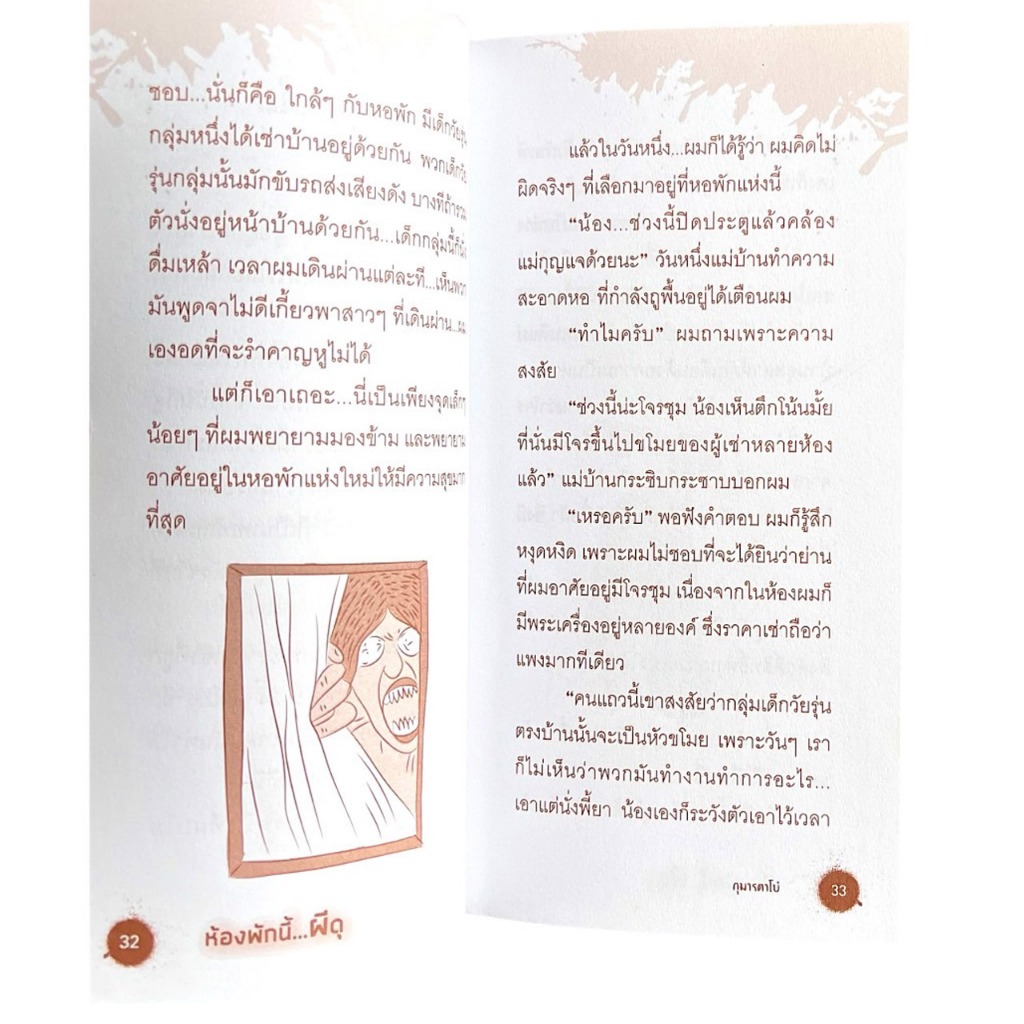 ชอบ...นั่นก็คือ ใกล้ๆ กับหอพัก มีเด็กวัยรุ่น
กลุ่มหนึ่งได้เช่าบ้านอยู่ด้วยกัน พวกเด็กวัย
รุ่นกลุ่มนั้นมักขับรถส่งเสียงดัง บางทีถ้ารวม
ตัวนั่งอยู่หน้าบ้านด้วยกัน...เด็กกลุ่มนี้ก็นั่ง
ดื่มเหล้า เวลาผมเดินผ่านแต่ละที...เห็นพวก
มันพูดจาไม่ดีเกี้ยวพาสาวๆ ที่เดินผ่าน...ผม
เองอดที่จะรำคาญหูไม่ได้
แต่ก็เอาเถอะ...นี่เป็นเพียงจุดเล็กๆ
น้อยๆ ที่ผมพยายามมองข้าม และพยายาม
อาศัยอยู่ในหอพักแห่งใหม่ให้มีความสุขมาก
ที่สุด
32
ห้องพักนี้...ผีดุ
แล้วในวันหนึ่ง...ผมก็ได้รู้ว่า ผมคิดไม่
ผิดจริงๆ ที่เลือกมาอยู่ที่หอพักแห่งนี้
“น้อง...ช่วงนี้ปิดประตูแล้วคล้อง
แม่กุญแจด้วยนะ” วันหนึ่งแม่บ้านทำความ
สะอาดหอ ที่กำลังถูพื้นอยู่ได้เตือนผม
“ทำไมครับ” ผมถามเพราะความ
สงสัย
“ช่วงนี้น่ะโจรชุม น้องเห็นตึกโน้นมั้ย
ที่นั่นมีโจรขึ้นไปขโมยของผู้เช่าหลายห้อง
แล้ว” แม่บ้านกระซิบกระซาบบอกผม
“เหรอครับ” พอฟังคำตอบ ผมก็รู้สึก
หงุดหงิด เพราะผมไม่ชอบที่จะได้ยินว่าย่าน
ที่ผมอาศัยอยู่มีโจรชุม เนื่องจากในห้องผมก็
มีพระเครื่องอยู่หลายองค์ ซึ่งราคาเช่าถือว่า
แพงมากทีเดียว
“คนแถวนี้เขาสงสัยว่ากลุ่มเด็กวัยรุ่น
ตรงบ้านนั้นจะเป็นหัวขโมย เพราะวันๆ เรา
ก็ไม่เห็นว่าพวกมันทำงานทำการอะไร...
เอาแต่นั่งพี้ยา น้องเองก็ระวังตัวเอาไว้เวลา
กุมารตาโบ๋
33